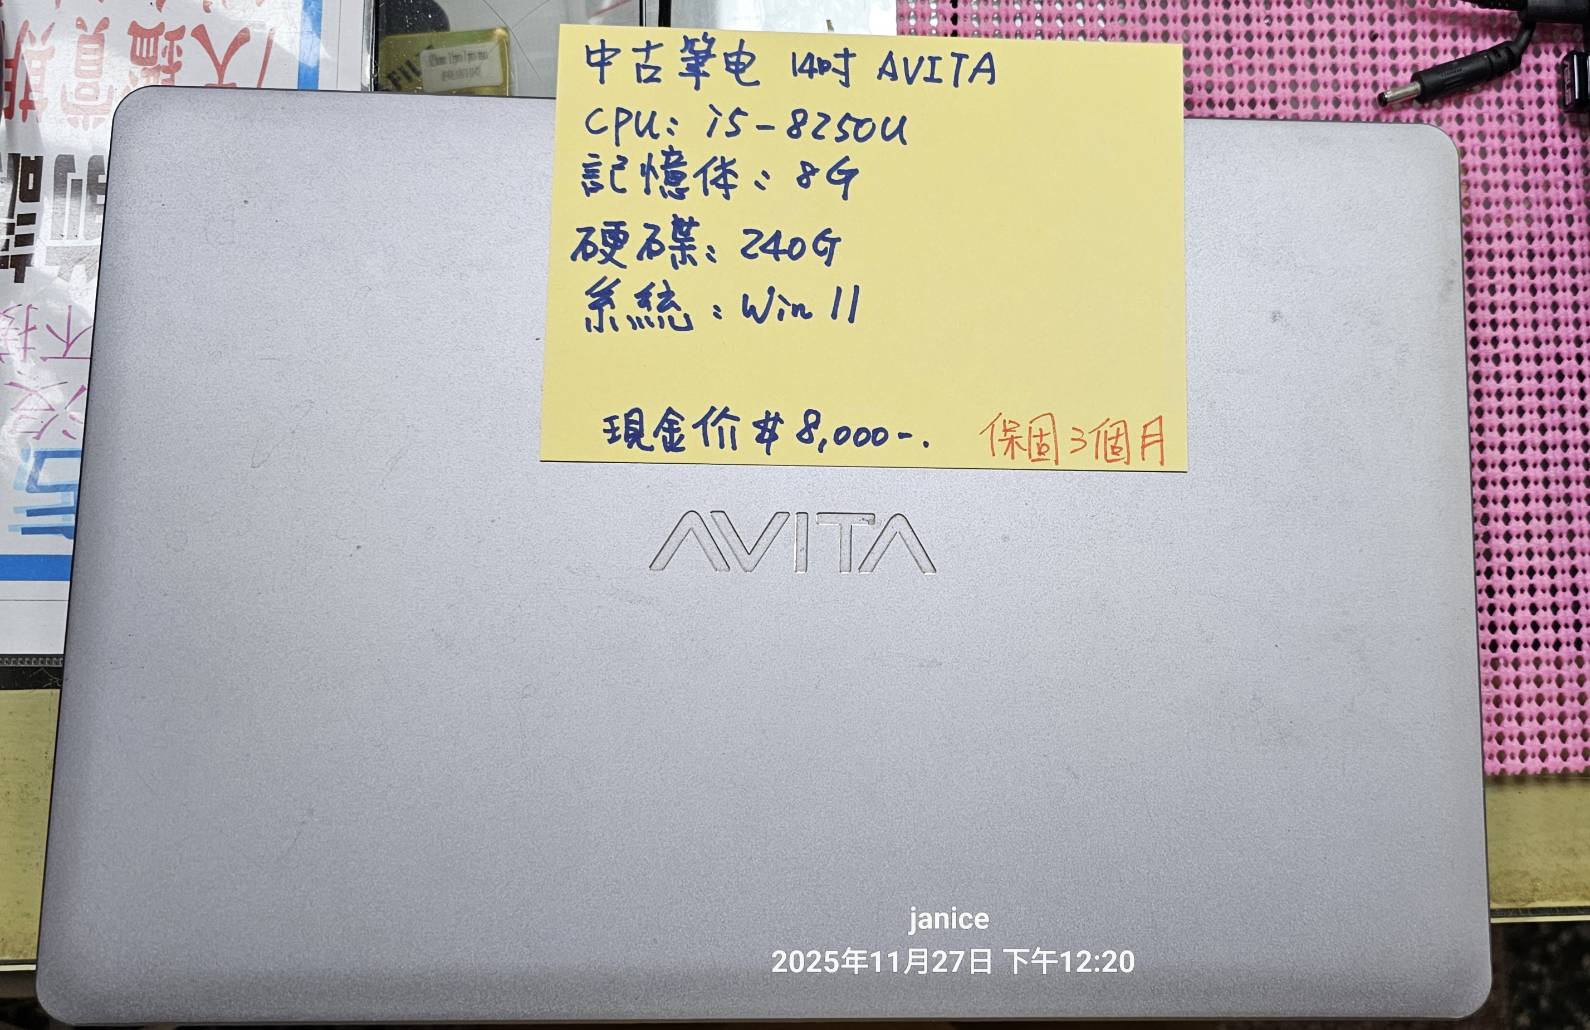 中古筆电 14吋 AVITA
CPU: i5-8250U
記憶体: 8G
硬碟: 240G
系統: Win 11
現金价 $8,000-. 保固3個月
AVITA
janice
2025年11月27日 下午12:20